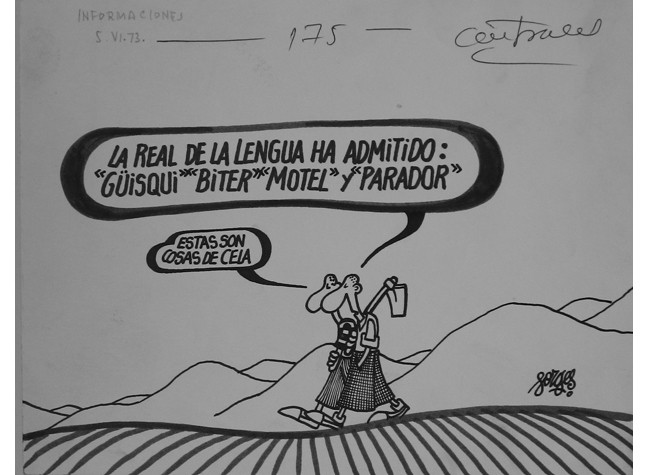 INFORMACIONES
5. VI. 73. — 175 — Centrales
LA REAL DE LA LENGUA HA ADMITIDO:
"GÜISQUI" "BITER" "MOTEL" Y "PARADOR"
ESTAS SON
COSAS DE CELA
forges